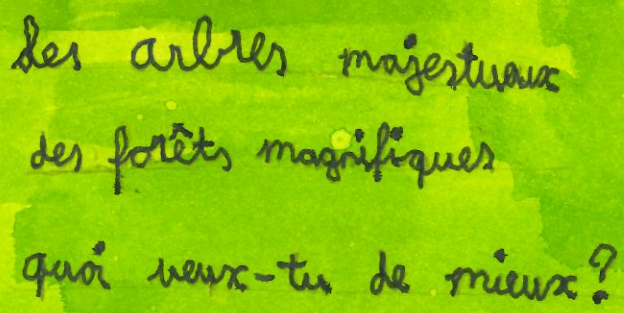 Des arbres majestuaux
des forêts magnifiques
quoi veux-tu de mieux?